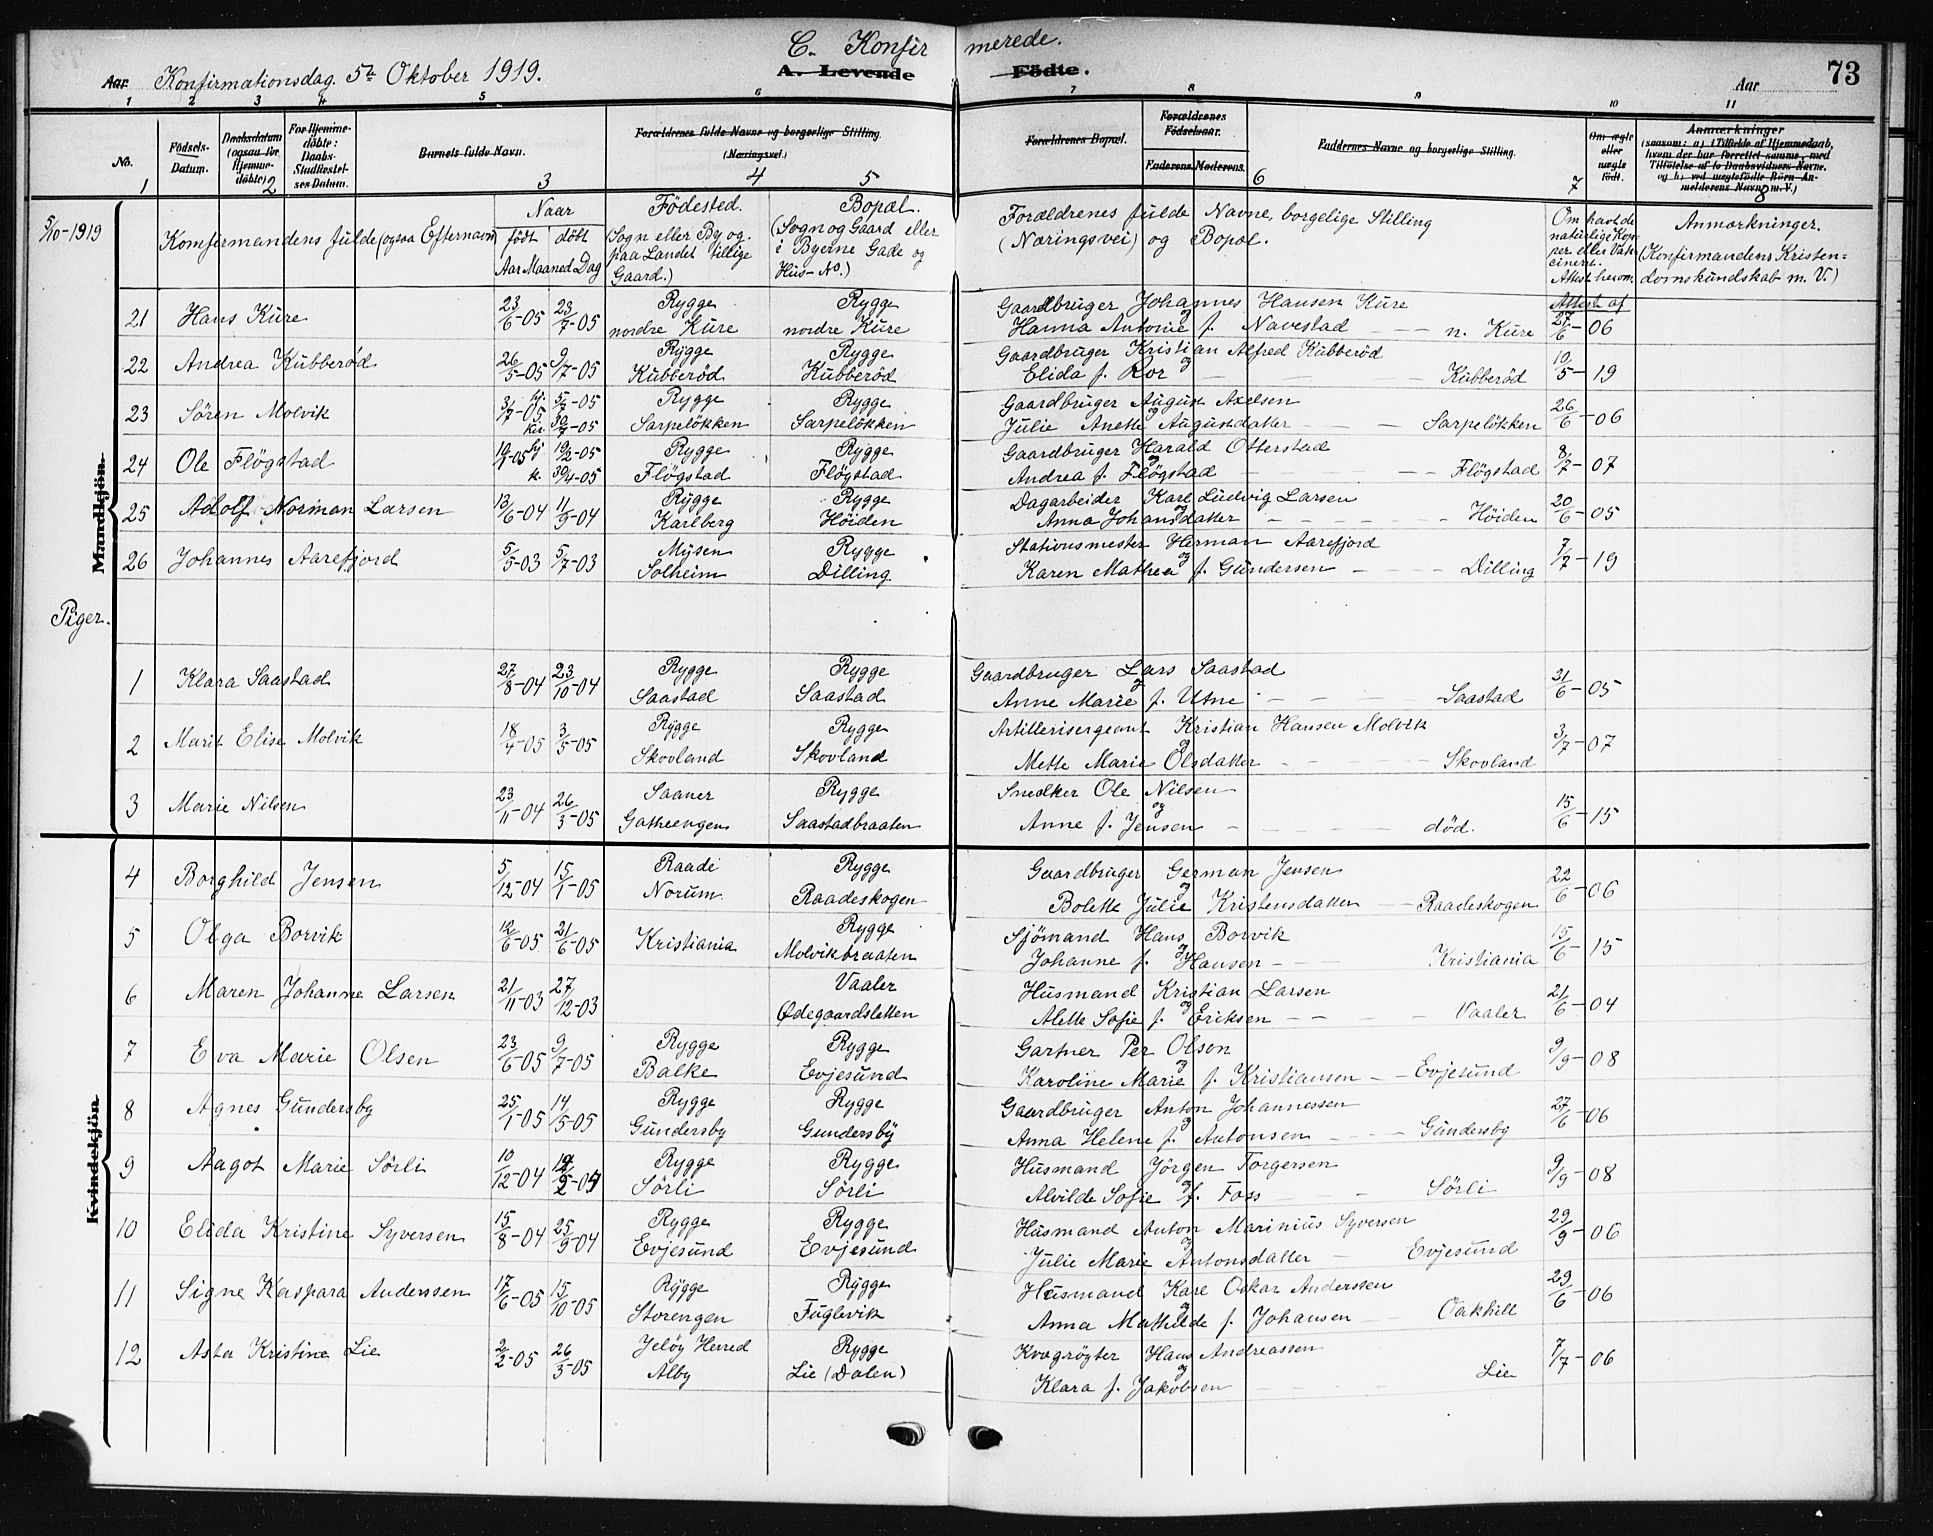 C. Konfirmerede.
A. Levende Födte.
Aar Konfirmationsdag 5te Oktober 1919.
Aar
73
1 2 3 4 5 6 7 8 9 10 11
No.
Födsels-Datum.
Daabsdatum (ogsaa for Hjemmedöbte)
For Hjemmedöbte: Daabs-Stadfæstelses-Datum.
Barnets fulde Navn.
Forældrenes fulde Navne og borgerlige Stilling. (Næringsvei.)
Forældrenes Bopæl.
Forældrenes Födselsaar.
Faderens. Moderens.
Faddernes Navne og borgerlige Stilling.
Om ægte eller uægte födt.
Anmærkninger
(saasom: a) i Tilfælde af Hjemmedaab, hvem der har forrettet samme, med Tilföielse af to Daabsvidners Navne, og b) ved uægtefödte Börn Anmelderens Navn m. V.)
1 2 3 4 5 6 7 8
5/10-1919
Konfirmandens fulde (ogsaa Efternavn)
Naar
födt döbt
Aar Maaned Dag
Födested.
(Sogn eller By og paa Landet tillige Gaard.)
Bopæl.
(Sogn og Gaard eller i Byerne Gade og Hus-No.)
Forældrenes fulde Navne, borgelige Stilling
(Næringsvei) og Bopæl.
Om havt de naturlige Kopper eller Vakcineret. Attest herom.
Anmærkninger.
(Konfirmandens Kristendomskundskab m. V.)
Attest af
Mandkjön.
21 Hans Kure 23/6-05 23/7-05 Rygge nordre Kure Rygge nordre Kure Gaardbruger Johannes Hansen Kure og Hanna Antonie f. Navestad - n. Kure 27/6-06
22 Andrea Kubberöd 26/5-05 9/7-05 Rygge Kubberöd Rygge Kubberöd Gaardbruger Kristian Alfred Kubberöd og Elida f. Ror - Kubberöd 10/5-19
23 Sören Molvik 3/7-05 hj. 5/7-05 kir. 30/7-05 Rygge Sarpelökken Rygge Sarpelökken Gaardbruger August Axelsen og Julie Anette Augustdatter - Sarpelökken 26/6-06
24 Ole Flögstad 19/1-05 hj 19/2-05 k. 30/4-05 Rygge Flögstad Rygge Flögstad Gaardbruger Harald Otterstad og Andrea f. Flögstad - Flögstad 8/7-07
25 Adolf Norman Larsen 13/6-04 11/9-04 Rygge Karlberg Rygge Höiden Dagarbeider Karl Ludvig Larsen og Anna Johansdatter - Höiden 20/6-05
26 Johannes Aarefjord 5/5-03 5/7-03 Mysen Solheim Rygge Dilling Stationsmester Herman Aarefjord og Karen Mathea f. Gundersen - Dilling 7/7-19
Piger.
1 Klara Saastad 27/8-04 23/10-04 Rygge Saastad Rygge Saastad Gaardbruger Lars Saastad og Anne Marie f. Utne - Saastad 21/6-05
2 Marit Elise Molvik 18/4-05 3/5-05 Rygge Skovland Rygge Skovland Artillerisergeant Kristian Hansen Molvik og Mette Marie Olsdatter - Skovland 3/7-07
3 Marie Nilsen 23/11-04 26/3-05 Saaner Gatheengen Rygge Saastadbraaten Snedker Ole Nilsen og Anne f. Jensen - död. 15/6-15
Kvindekjön.
4 Borghild Jensen 5/12-04 15/1-05 Raade Norum Rygge Raadeskogen Gaardbruger German Jensen og Bolette Julie Kristensdatter - Raadeskogen 22/6-06
5 Olga Borvik 12/6-05 21/6-05 Kristiania Rygge Molvikbraaten Sjömand Hans Borvik og Johanne f. Hansen - Kristiania 15/6-15
6 Maren Johanne Larsen 21/11-03 27/12-03 Vaaler Ødegaardsletten Husmand Kristian Larsen og Alette Sofie f. Eriksen - Vaaler 21/6-04
7 Eva Marie Olsen 23/6-05 9/7-05 Rygge Balke Rygge Evjesund Gartner Per Olson og Karoline Marie f. Kristiansen - Evjesund 9/9-08
8 Agnes Gundersby 25/1-05 14/5-05 Rygge Gundersby Rygge Gundersby Gaardbruger Anton Johannessen og Anna Helene f. Antonsen - Gundersby 27/6-06
9 Aagot Marie Sörli 10/12-04 Rygge Sörli Rygge Sörli Husmand Jörgen Torgersen og Alvilde Sofie f. Foss - Sörli 9/9-08
10 Elida Kristine Syversen 15/8-04 25/9-04 Rygge Evjesund Rygge Evjesund Husmand Anton Marinius Syversen og Julie Marie Antonsdatter - Evjesund 29/9-06
11 Signe Kaspara Anderssen 17/6-05 15/10-05 Rygge Storengen Rygge Fuglevik Husmand Karl Oskar Anderssen og Anna Mathilde f. Johansen - Oakhill 29/6-06
12 Asta Kristine Lie 2/2-05 26/3-05 Jelöy Herred Alby Rygge Lie (Dalen) Kvægrögter Hans Andreassen og Klara f. Jakobsen - Lie 7/7-06